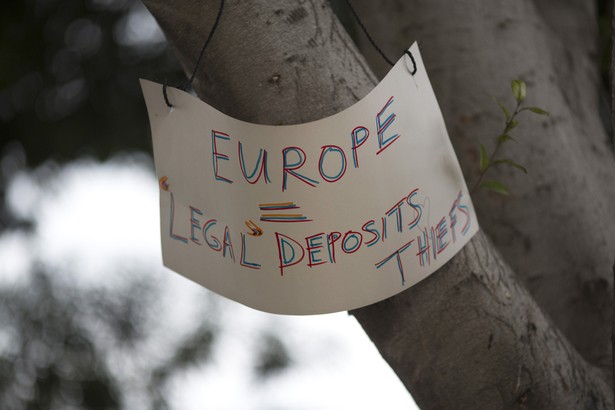 EUROPE
=
LEGAL DEPOSITS THIEFS